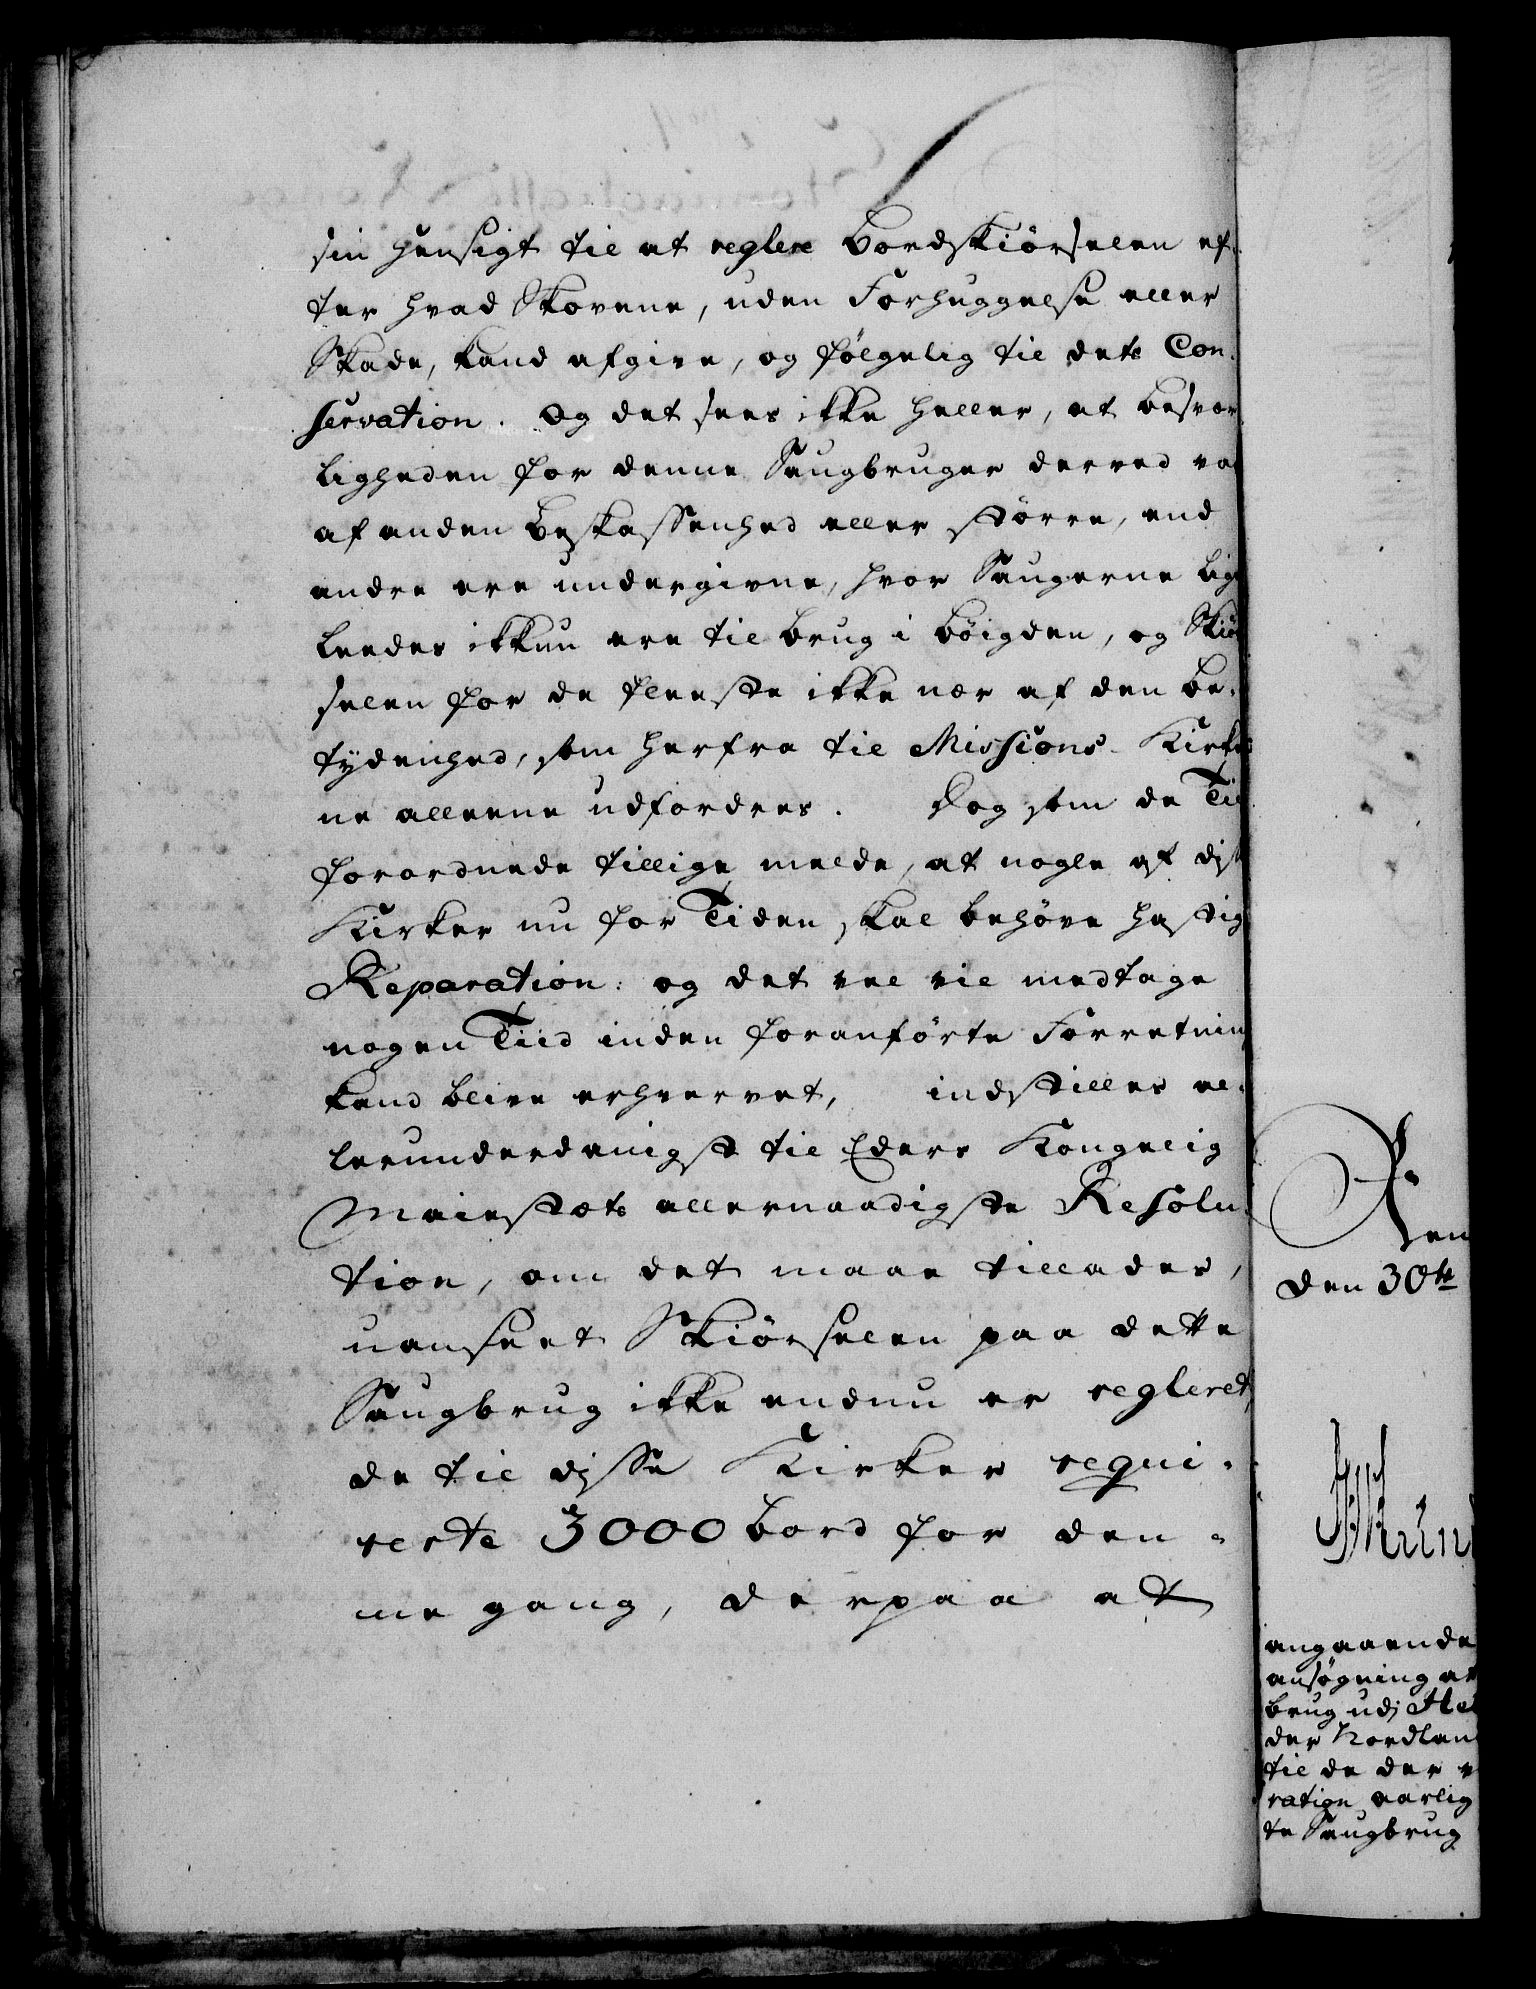 sin hensigt til at reglere bordskiørselen ef-
ter hvad Skovene, uden Forhuggelse eller
Skade, kand afgive, og følgelig til dets Con-
servation. Og det sees ikke heller, at besvær
ligheden for denne Saugbruger derved var
af anden beskaffenhed eller større, end
andre ere undergivne, hvor Saugerne lige
leedes ikkun ere til brug i bøigden, og Skiør
selen for de fleeste ikke nær af den be-
tydenhed, som herfra til Missions-Kirker
ne alleene udfordres. Dog som de Til
forordnede tillige melde, at nogle af disse
Kirker nu for Tiden skal behøve hastig
Reparation: og det vel vil medtage
nogen Tiid inden foranførte Forretning
kand blive erhvervet, indstilles al-
lerunderdanigst til Eders Kongelig
Maiestæts allernaadigste Resolu-
tion, om det maae tillades,
uanseet Skiørselen paa dette
Saugbrug ikke endnu er regleret,
de til disse Kirker requi-
rerte 3000 bord for den-
ne gang, derpaa at
den 30te
angaaende
ansøgning at
brug udj He
der Nordlan
til de der v
ration aarlig
te Saugbrug